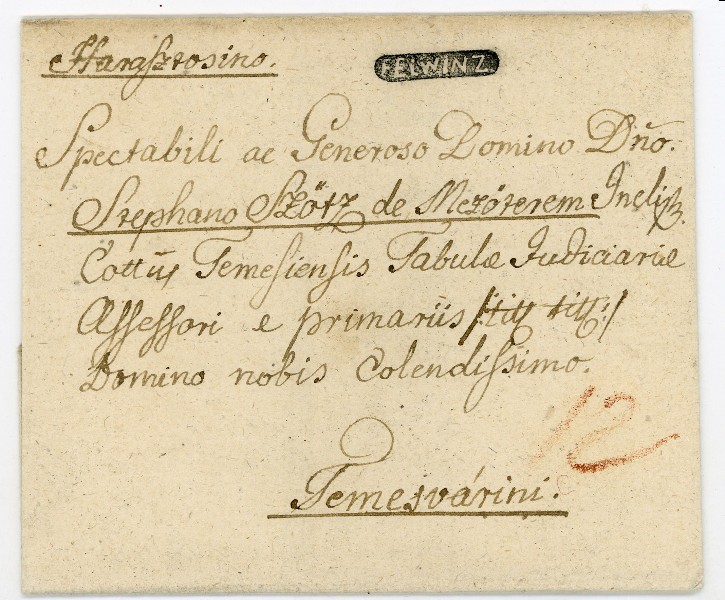 Harasztosino.
FELWINZ
Spectabili ac Generoso Domino Dño.
Stephano Szötz de Mezöterem Inclÿt.
Cottûs Temesiensis Tabulæ Judiciariæ
Assessori e primariis /: titt titt :/
Domino nobis Colendissimo.
12
Temesvárini.